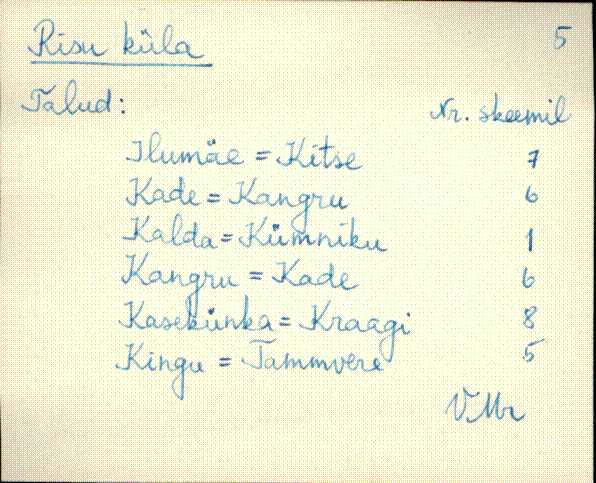 Risu küla 5
Talud: Nr. skeemil
Ilumäe = Kitse 7
Kade = Kangru 6
Kalda = Kümniku 1
Kangru = Kade 6
Kasekünka = Kraagi 8
Kingu = Tammvere 5
VMr